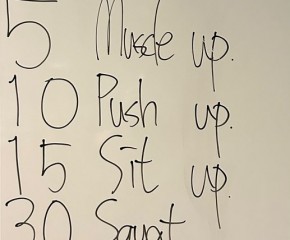 5 Muscle up.
10 Push up.
15 Sit up.
30 Squat